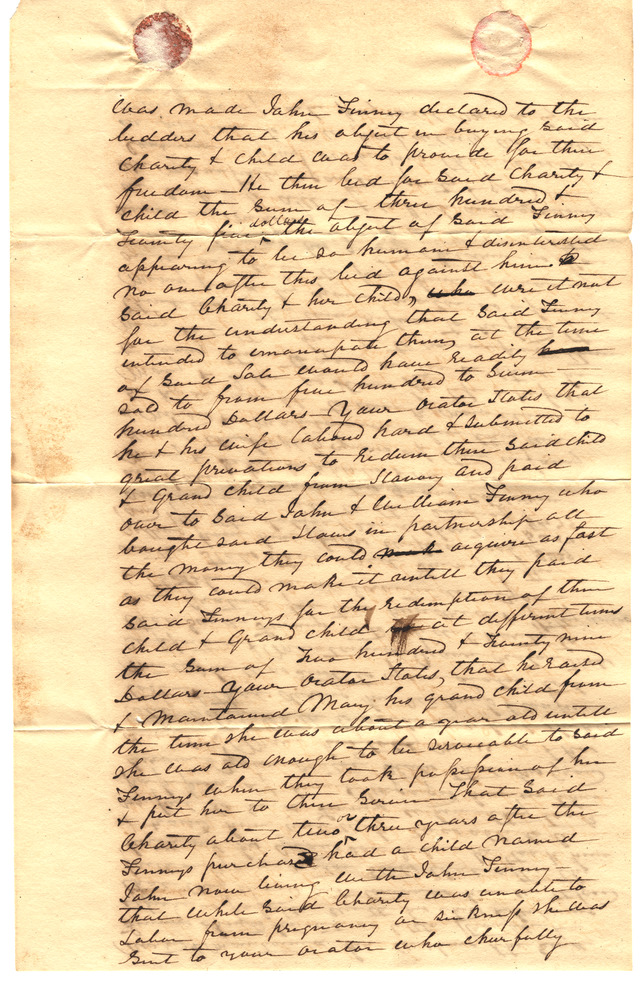 was made John Finney declared to the
bidders that his object in buying said
Charity & Child was to provide for their
freedom – He then bid for said Charity &
child the sum of three hundred &
Twenty five dollars the object of said Finney
appearing to be so humane & disinterested
no one after this bid against him
said Charity & her child, were it not
for the understanding that said Finney
intended to emancipate them, at the time
of said Sale would have readily
sold to from five hundred to seven
hundred Dollars – Your orator states that
he & his wife labourd hard & submitted to
great privations to redeem their said child
& Grand child from Slavery and paid
over to said John & William Finney who
bought said slaves in partnership all
the money they could acquire as fast
as they could make it untill they paid
said Finneys for the redemption of their
child & Grand child at different times
the sum of Two hundred & Twenty nine
Dollars – Your orator states, that he raised
& maintained Mary his grand child from
the time she was about a year old untill
she was old enough to be serviceable to said
Finneys when they took possession of her
& put her to their service – That said
Charity about two or three years after the
Finneys purchase had a child named
John now living with John Finney –
that while said Charity was unable to
Labor from pregnancy or sickness she was
sent to your orator who churfully